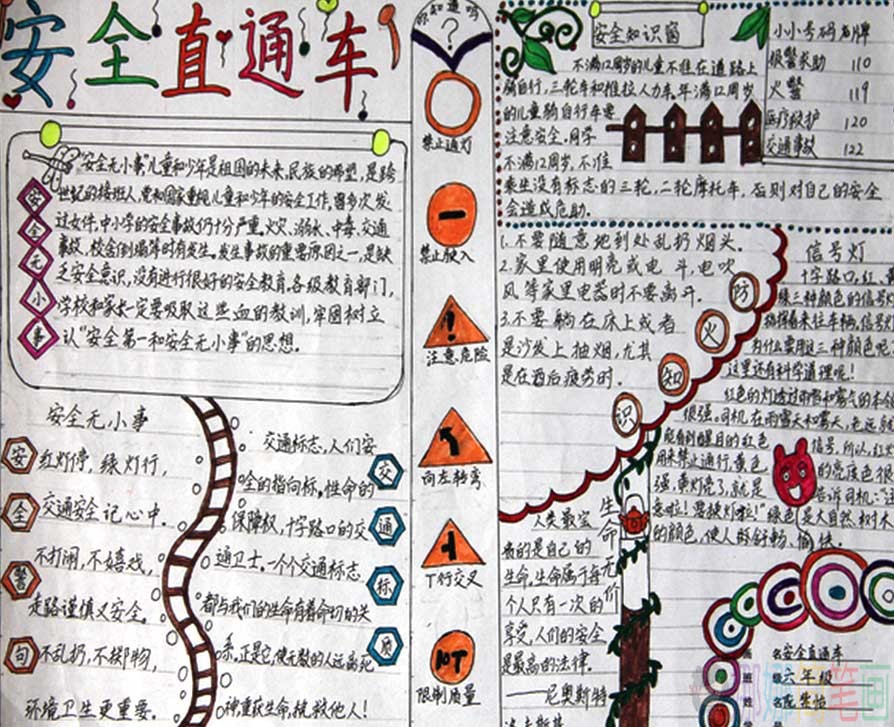 安全直通车
"安全无小事"儿童和少年是祖国的未来,民族的希望,是跨
世纪的接班人,党和国家重视儿童和少年的安全工作,曾多次发
过文件,中小学的安全事故仍十分严重。火灾、溺水、中毒、交通
事故,校舍倒塌等时有发生。发生事故的重要原因之一,是缺
乏安全意识,没有进行很好的安全教育。各级教育部门,
学校和家长一定要吸取这些血的教训,牢固树立
认"安全第一和安全无小事"的思想。
安全无小事
安全无小事
红灯停,绿灯行,
交通安全记心中。
不打闹,不嬉戏,
走路谨慎又安全。
不乱扔,不
环境卫生更重要。
安全警句
交通标志,人们安
全的指向标。性命的
保障权,十字路口的交
通卫士。一个个交通标志
都与我们的生命有着
系。正是它,使无数的人远离死
神,重获生命,
交通标质
你知道吗
?
禁止通行
禁止驶入
注意危险
向左转弯
T行交叉
10T
限制质量
安全知识窗
不满12周岁的儿童不准在道路上
骑自行,三轮车和推拉人力车。年满12周岁
的儿童骑自行车要
注意安全。同学
不满12周岁,不准
乘坐没有标志的三轮,二轮摩托车,否则对自己的安全
会造成危助。
小小号码
报警求助 110
火警 119
医疗救护 120
交通事故 122
1.不要随意地到处乱扔烟头。
2.家里使用明亮或电 斗,电吹
风等家里电器时不要离开。
3.不要躺在床上或者
是沙发上抽烟,尤其
是在酒后疲劳时。
防火知识
信号灯
十字路口,红、
绿三种颜色的信号
指挥着来往车辆,信号
为什么要用这三种颜色呢
这里还有科学道理呢!
红色的灯透过雨雪和雾气的本
很强。司机在雨雪天和雾天,
能看到醒目的红色 信号,所以,红
用来禁止通行,黄色 的亮度也很
强,黄灯亮了,就是 告诉司机:
绿色 是大自然树
的颜色,使人 舒畅、愉快。
人类最宝
贵的是自己的
生命,生命属于每
个人只有一次的
享受,人们的安全
是最高的法律。
——尼奥斯特
生命无价
名 安全直通车
班级 六年级